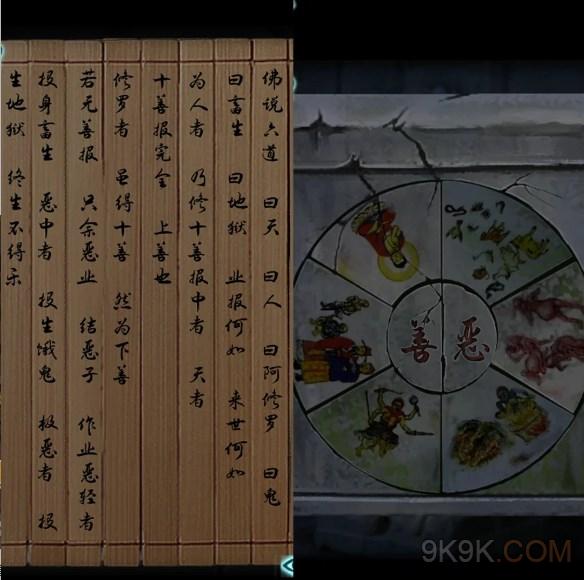 佛说六道 曰天 曰人 曰阿修罗 曰鬼
曰畜生 曰地狱 业报何如 来世何如
为人者 乃修十善报中者 天者
十善报完全 上善也
修罗者 虽得十善 然为下善
若无善报 只余恶业 结恶子 作业恶轻者
投身畜生 恶中者 投生饿鬼 极恶者 投
生地狱 终生不得乐
善 恶
9K9K.COM